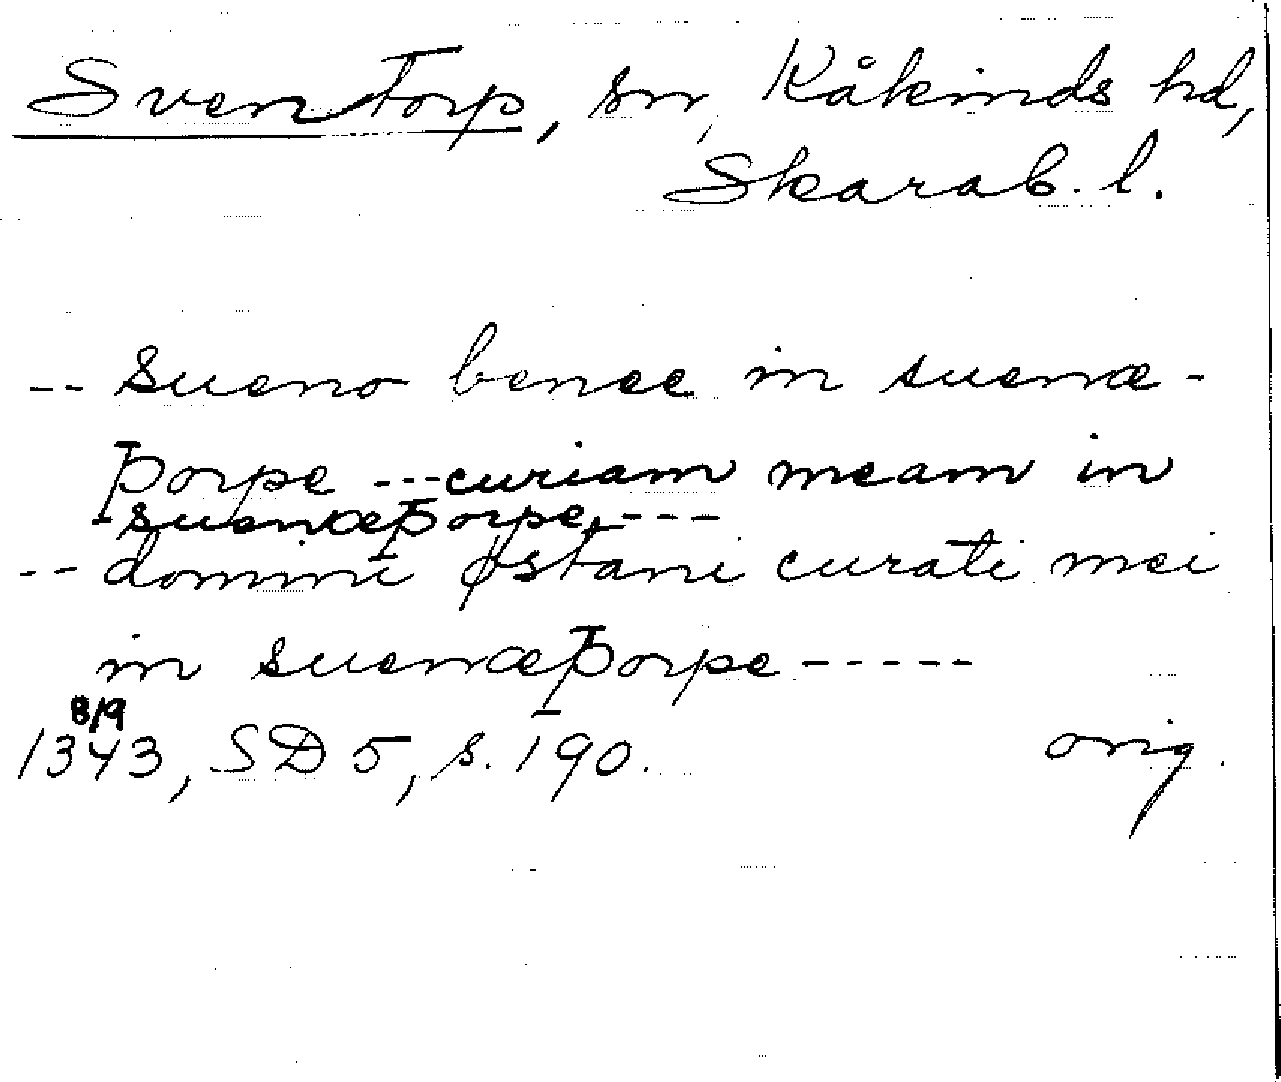 Sventorp, sn, Kåkinds hd,
Skarab. l.
-- Sueno benee in suenæ-
þorpe --- curiam meam in
suenæþorpe, ---
-- domini østani curati mei
in suenæþorpe -----
8/9
1343, SD 5, s. 190. orig.